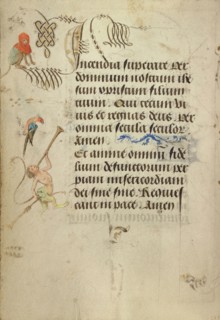 Incendia superare Per
dominum nostrum ihe
sum xpristum filium
tuum. Qui tecum vi
uis et regnas deus. Per
omnia secula seculor
Amen
Et anime omnium fide
lium defunctorum per
piam misericordiam
dei sine fine Requies
cant in pace. Amen